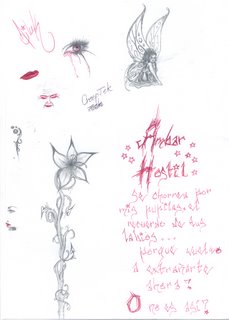 Ambar
Hostil
Se chorrea por
mis pupilas, el
recuerdo de tus
labios...
porque vuelvo
a extrañarte
ahora?
O no es así?